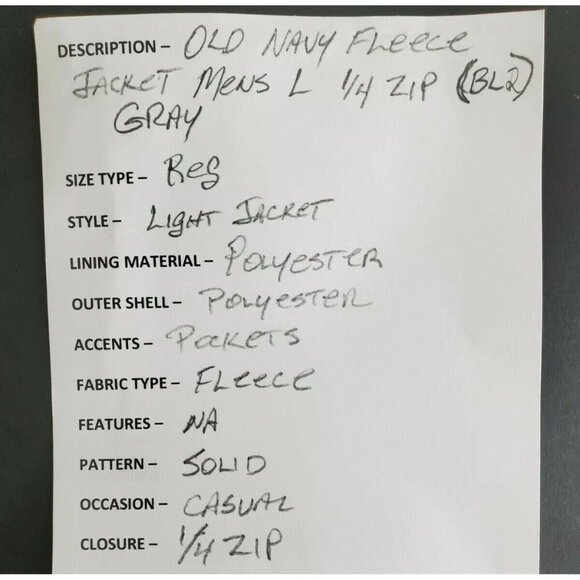 DESCRIPTION – OLD NAVY FLeece
JACKET MeNS L 1/4 ZIP (BL2)
GRAY
SIZE TYPE – Reg
STYLE – LIGHT JACKET
LINING MATERIAL – POLYESTER
OUTER SHELL – POLYESTER
ACCENTS – POCKETS
FABRIC TYPE – FLeece
FEATURES – NA
PATTERN – SOLID
OCCASION – CASUAL
CLOSURE – 1/4 ZIP